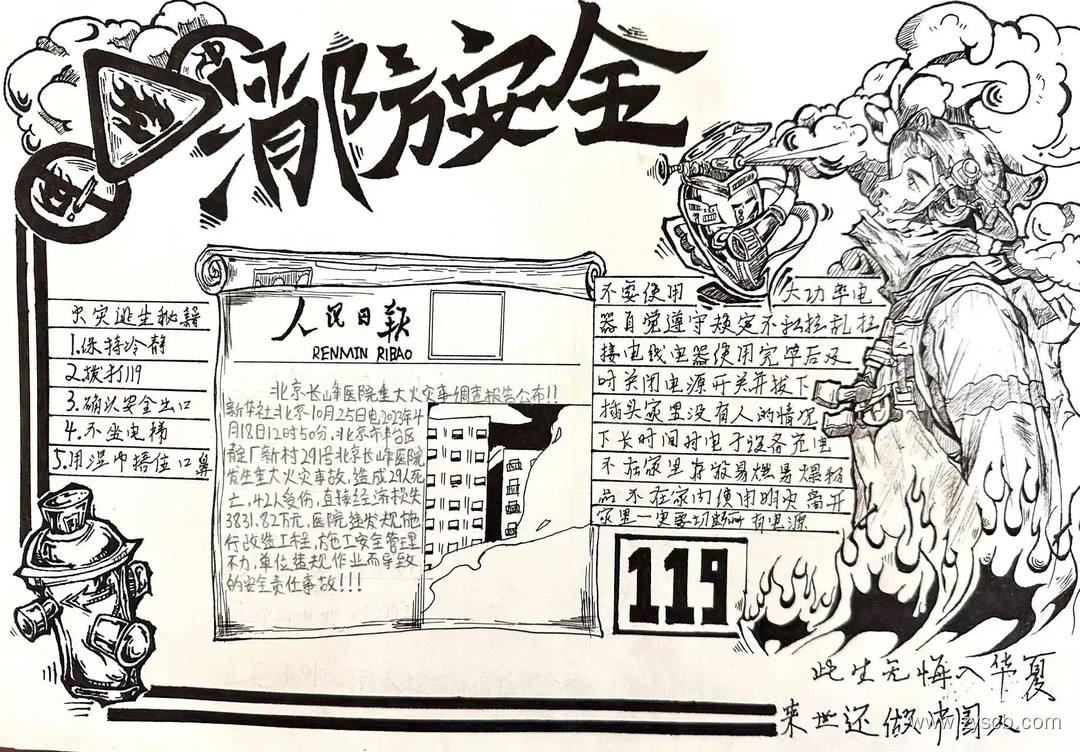 消防安全
火灾逃生秘籍
1.保持冷静
2.拨打119
3.确认安全出口
4.不坐电梯
5.用湿巾捂住口鼻
人民日报
RENMIN RIBAO
北京长峰医院重大火灾事调查报告公布!!
新华社北京10月25日电2023年4
月18日12时50分,北京市丰台区
靛厂新村291号北京长峰医院
发生重大火灾事故,造成29人死
亡,42人受伤,直接经济损失
3831.82万元,医院违发规施
行改造工程,施工安全管理
不力,单位违规作业而导致
的安全责任事故!!!
不要使用 大功率电
器自觉遵守规定不私拉乱拉
接电线电器使用完毕后及
时关闭电源开关并拔下
插头家里没有人的情况
下长时间对电子设备充电
不在家里存放易燃易爆物
品 不在家内使用明火离开
家里一定要切断所有电源
119
此生无悔入华夏
来世还做中国人